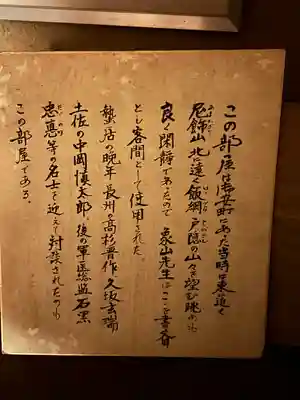 この部屋は浦町にあった当時は東に近く
尼飾山北に遠く飯綱戸隠の山々を望む眺めも
良く閑静であったので象山先生はここを書斎
とし客間として使用された。
蟄居の晩年長州の高杉晋作久坂玄瑞
土佐の中岡慎太郎。後の軍医総監石黒
忠悳等の名士を迎えて対談されたのも
この部屋である。